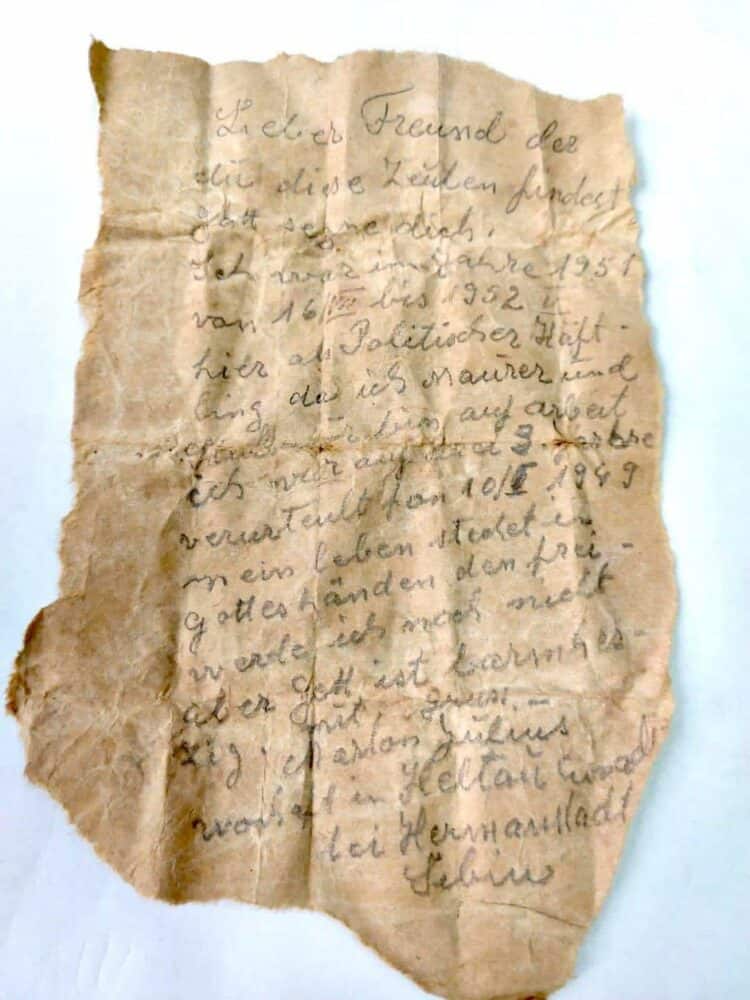 Lieber Freund der
du diese Zeulen fundest
Gott segne dich.
Ich war im Jahre 1951
von 16/VIII bis 1952 V
hier als Politischer Häft-
ling da ich Maurer und
bin auf arbeit
ich war auf 3 Jahre
verurteult fon 10/I 1949
mein leben stedet in
gottes händen den frei-
werde ich noch nicht
aber gott ist barmhes-
zig. mit gruss.-
Marton Julius
wohaft in Heltau
bei Hermanstadt
Sebiu